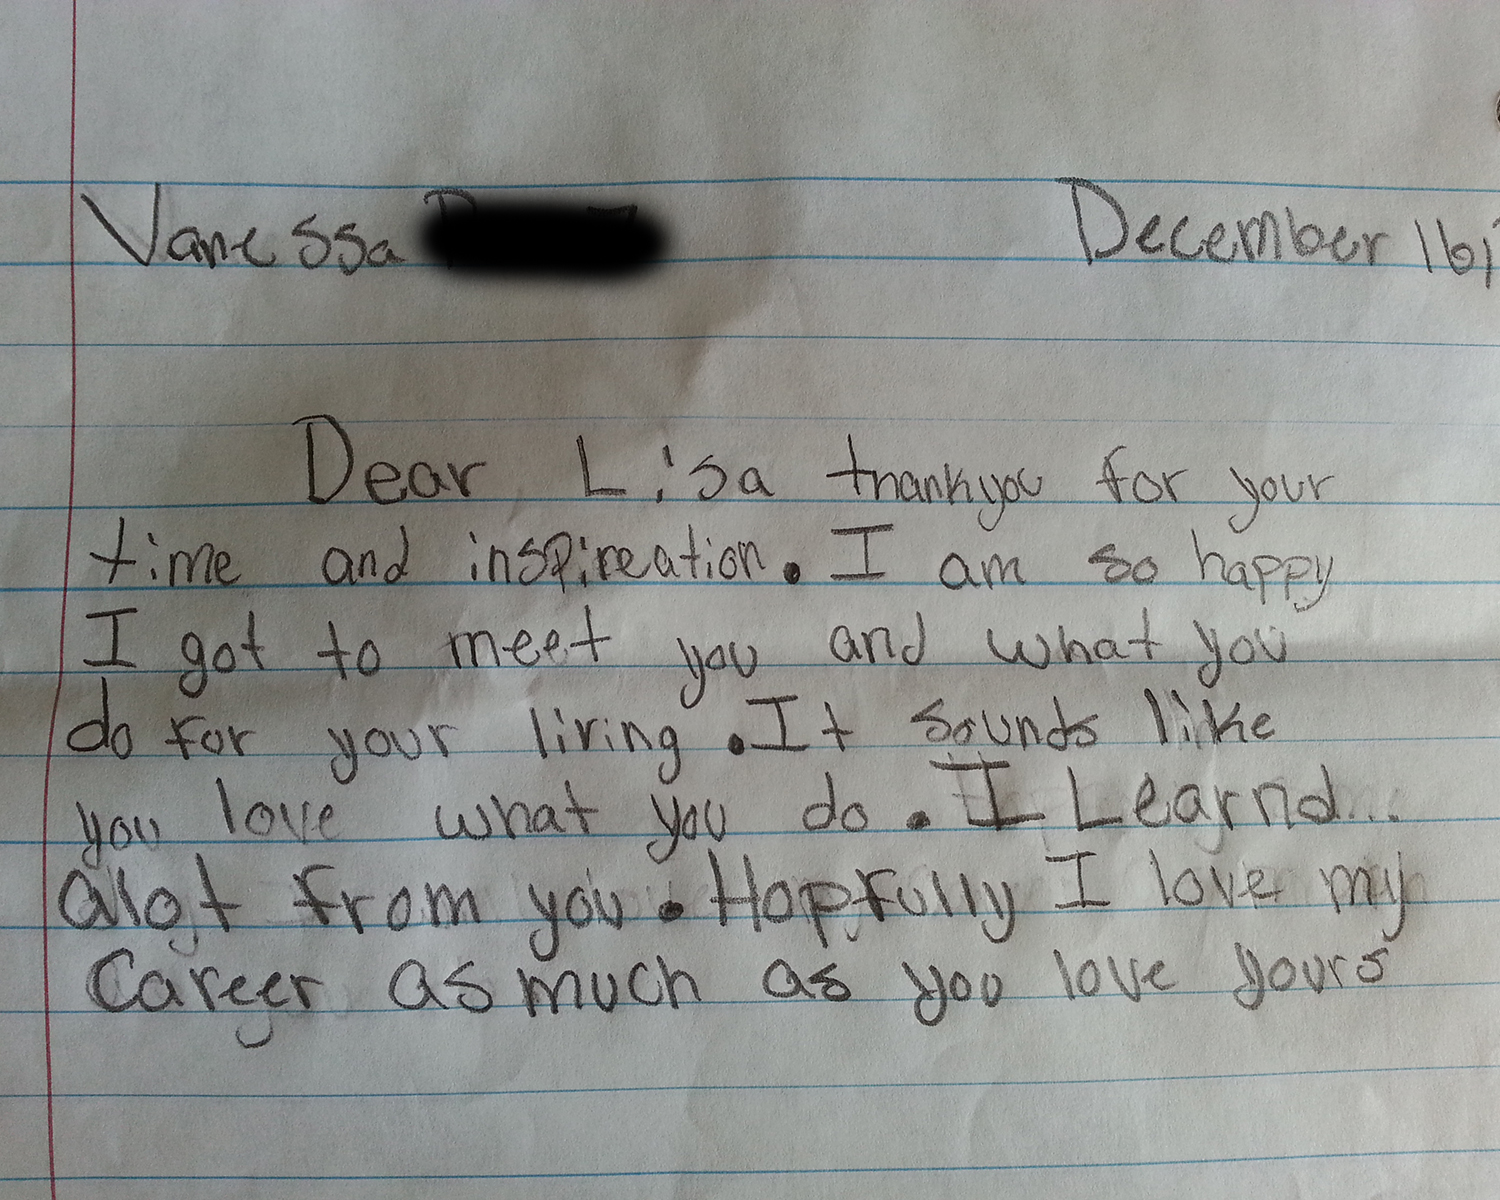 Vanessa December 16,
Dear Lisa thankyou for your
time and inspireation. I am so happy
I got to meet you and what you
do for your living. It sounds like
you love what you do. I Learnd...
alot from you. Hopfully I love my
Career as much as you love yours